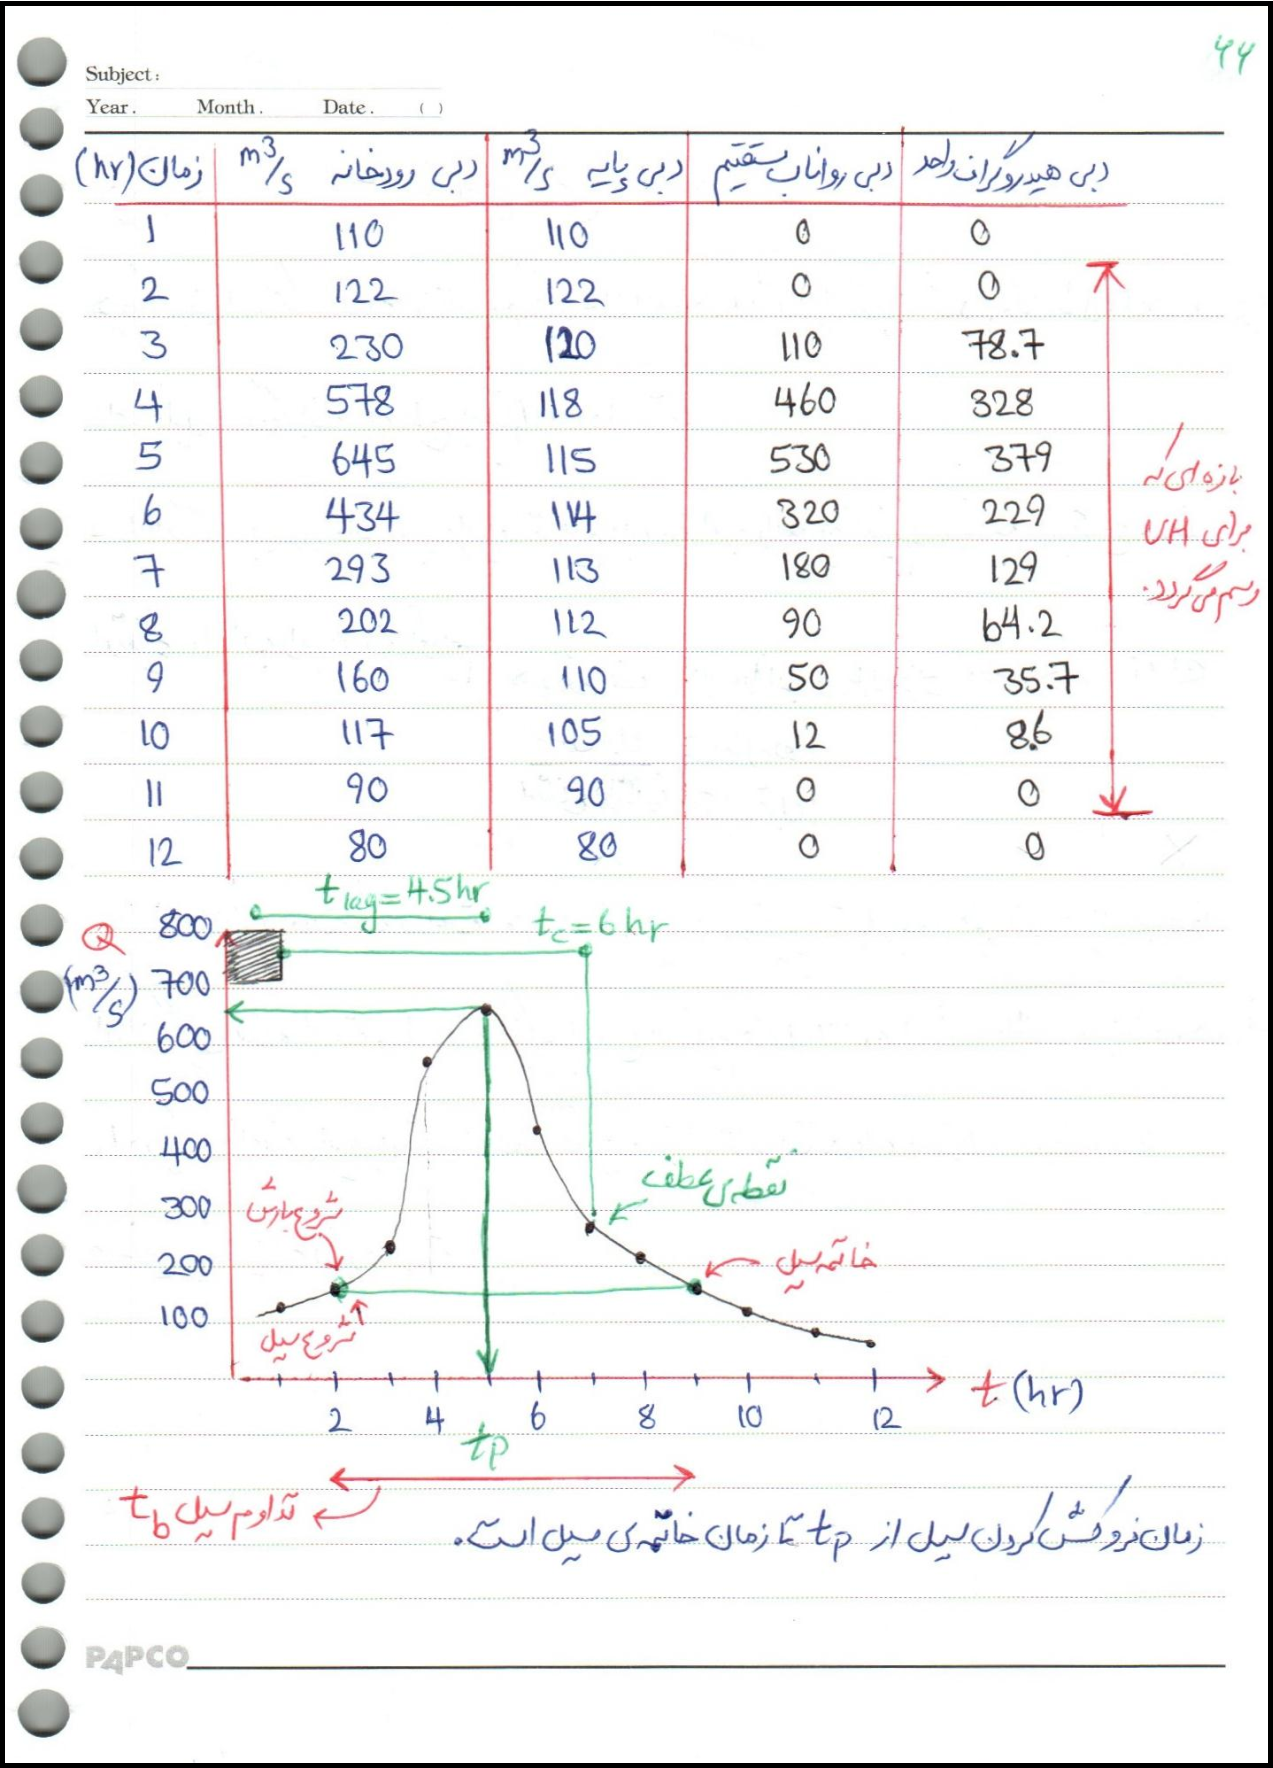 ۴۴
Subject:
Year. Month. Date. ( )
زمان (hr) دبی رودخانه m³/s دبی پایه m³/s دبی رواناب مستقیم دبی هیدروگراف واحد
1 110 110 0 0
2 122 122 0 0
3 230 120 110 78.7
4 578 118 460 328
5 645 115 530 379
6 434 114 320 229
7 293 113 180 129
8 202 112 90 64.2
9 160 110 50 35.7
10 117 105 12 8.6
11 90 90 0 0
12 80 80 0 0
بازه ای که
برای UH
رسم می گردد.
t lag = 4.5 hr
tc = 6 hr
Q
(m³/s)
800
700
600
500
400
300
200
100
شروع بارش
شروع سیل
نقطه ی عطف
خاتمه سیل
2 4 6 8 10 12
t (hr)
tp
tb تداوم سیل
زمان فروکش کردن سیل از tp تا زمان خاتمه ی سیل است.
PAPCO